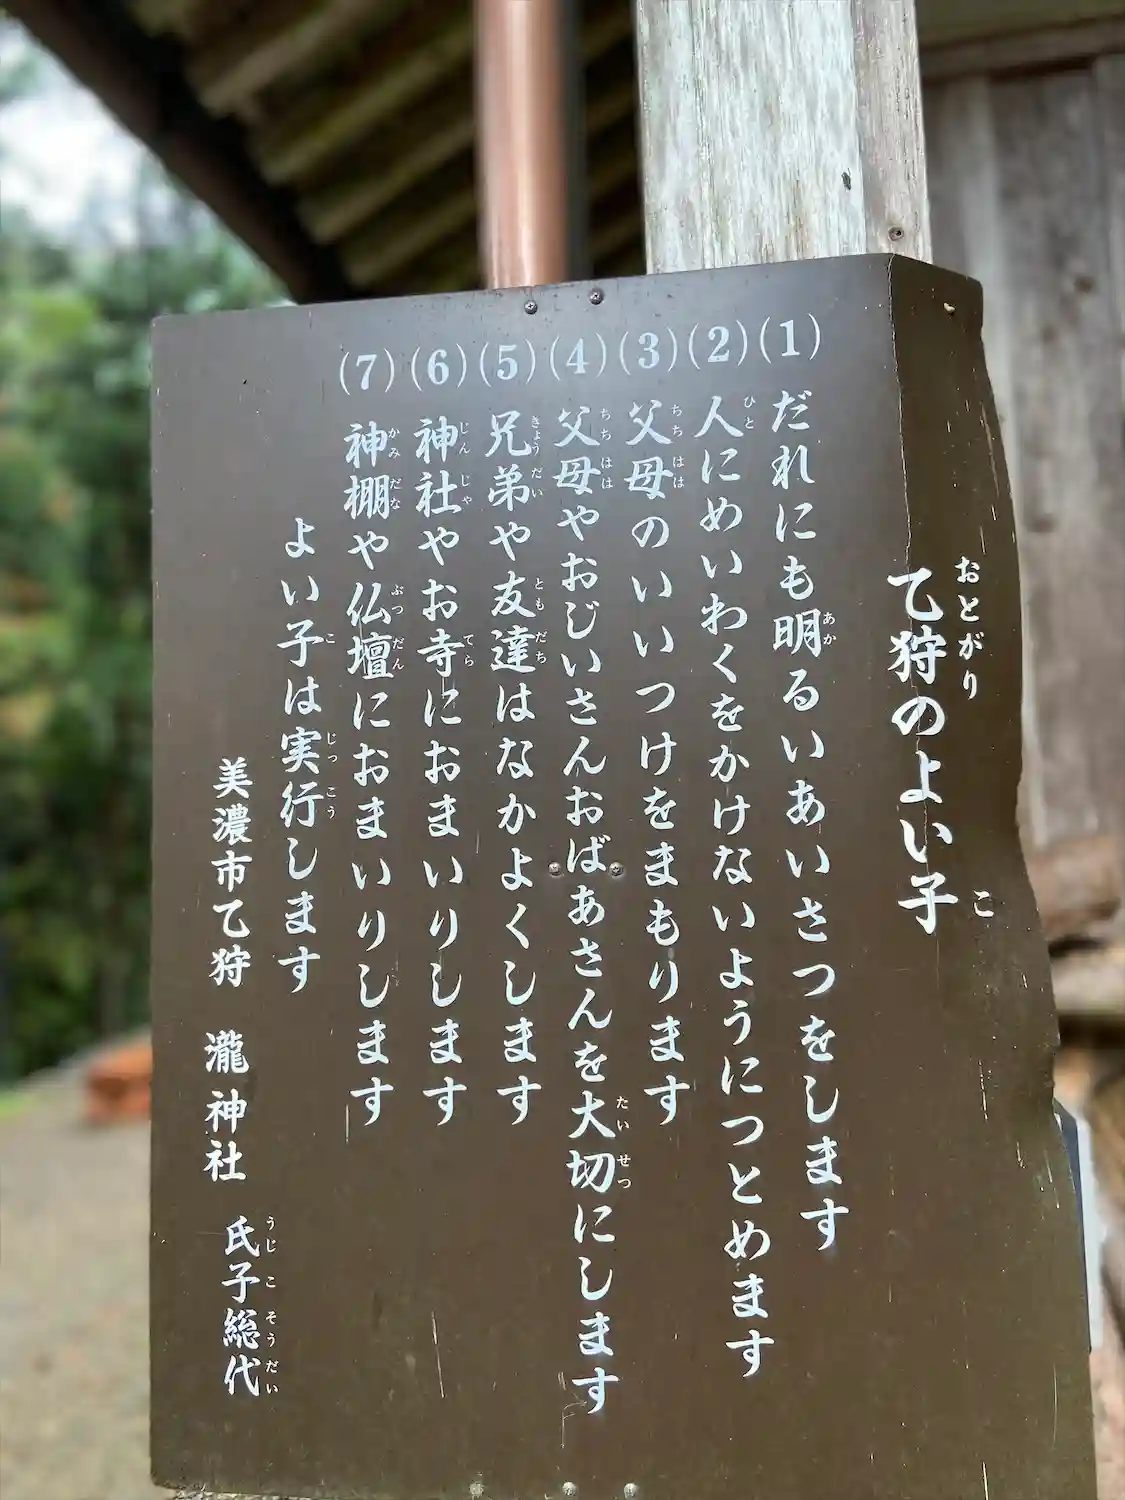 乙狩のよい子
(1)だれにも明るいあいさつをします
(2)人にめいわくをかけないようにつとめます
(3)父母のいいつけをまもります
(4)父母やおじいさんおばあさんを大切にします
(5)兄弟や友達はなかよくします
(6)神社やお寺におまいりします
(7)神棚や仏壇におまいりします
よい子は実行します
美濃市乙狩 瀧神社 氏子総代